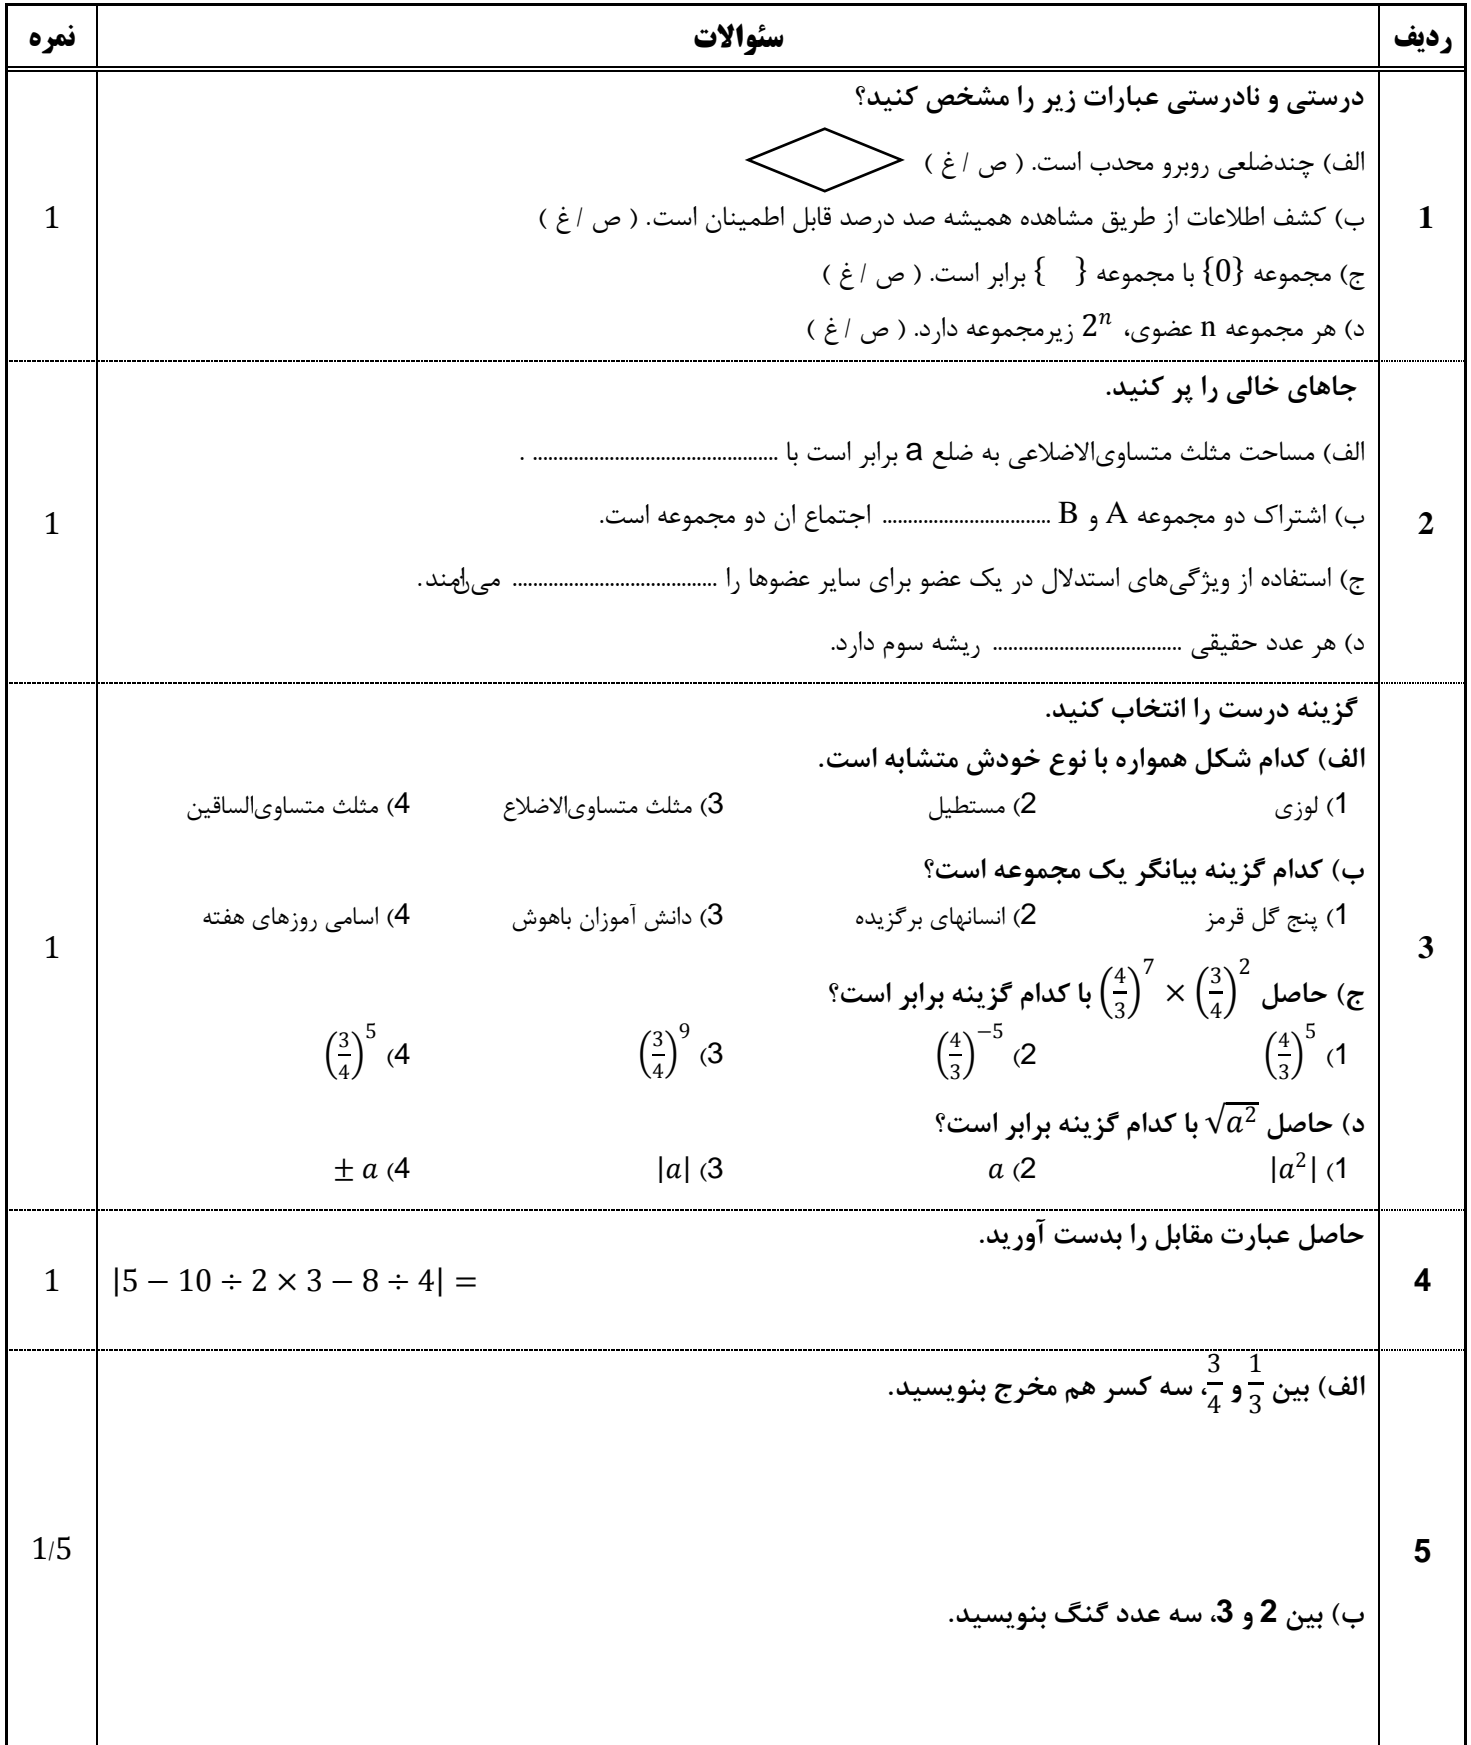 ردیف سئوالات نمره
درستی و نادرستی عبارات زیر را مشخص کنید؟
الف) چندضلعی روبرو محدب است. ( ص / غ )
1 ب) کشف اطلاعات از طریق مشاهده همیشه صد درصد قابل اطمینان است. ( ص / غ ) 1
ج) مجموعه {0} با مجموعه { } برابر است. ( ص / غ )
د) هر مجموعه n عضوی، 2ⁿ زیرمجموعه دارد. ( ص / غ )
جاهای خالی را پر کنید.
الف) مساحت مثلث متساوی‌الاضلاعی به ضلع a برابر است با ................................................ .
2 ب) اشتراک دو مجموعه A و B ................................. اجتماع ان دو مجموعه است. 1
ج) استفاده از ویژگی‌های استدلال در یک عضو برای سایر عضوها را ........................................
د) هر عدد حقیقی ..................................... ریشه سوم دارد.
گزینه درست را انتخاب کنید.
الف) کدام شکل همواره با نوع خودش متشابه است.
1) لوزی 2) مستطیل 3) مثلث متساوی‌الاضلاع 4) مثلث متساوی‌الساقین
ب) کدام گزینه بیانگر یک مجموعه است؟
1) پنج گل قرمز 2) انسانهای برگزیده 3) دانش آموزان باهوش 4) اسامی روزهای هفته
3 1
ج) حاصل (4/3)⁷ × (3/4)² با کدام گزینه برابر است؟
1) (4/3)⁵ 2) (4/3)⁻⁵ 3) (3/4)⁹ 4) (3/4)⁵
د) حاصل √a² با کدام گزینه برابر است؟
1) |a²| 2) a 3) |a| 4) ± a
حاصل عبارت مقابل را بدست آورید.
4 |5 − 10 ÷ 2 × 3 − 8 ÷ 4| = 1
الف) بین 1/3 و 3/4، سه کسر هم مخرج بنویسید.
5 1/5
ب) بین 2 و 3، سه عدد گنگ بنویسید.